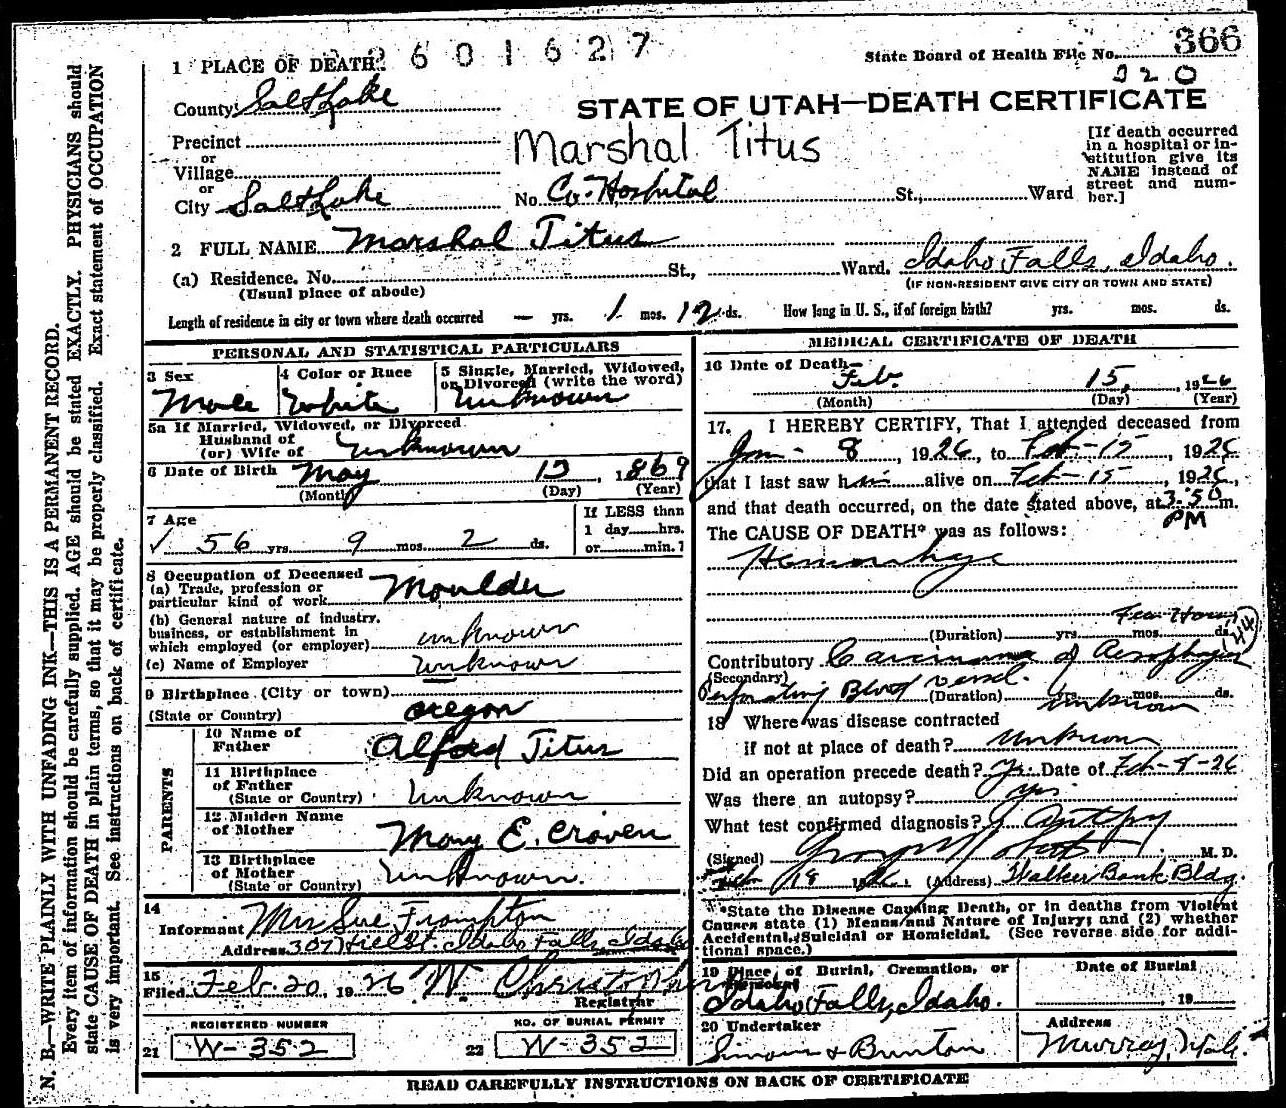 2601627
State Board of Health File No. 366
320
1 PLACE OF DEATH
County Salt Lake
STATE OF UTAH—DEATH CERTIFICATE
Precinct
or
Village
or
City Salt Lake
Marshal Titus
No. Co. Hospital St., Ward
[If death occurred
in a hospital or in-
stitution give its
NAME instead of
street and num-
ber.]
2 FULL NAME Marshal Titus
(a) Residence. No. St., Ward. Idaho Falls, Idaho.
(Usual place of abode) (IF NON-RESIDENT GIVE CITY OR TOWN AND STATE)
Length of residence in city or town where death occurred — yrs. 1 mos. 12 ds. How long in U. S., if of foreign birth? yrs. mos. ds.
PERSONAL AND STATISTICAL PARTICULARS
3 Sex
Male
4 Color or Race
White
5 Single, Married, Widowed,
or Divorced (write the word)
Unknown
5a If Married, Widowed, or Divorced
Husband of
(or) Wife of Unknown
6 Date of Birth May 13, 1869
(Month) (Day) (Year)
7 Age
✓ 56 yrs. 9 mos. 2 ds.
If LESS than
1 day hrs.
or min.?
8 Occupation of Deceased
(a) Trade, profession or
particular kind of work Moulder
(b) General nature of industry,
business, or establishment in
which employed (or employer) unknown
(c) Name of Employer unknown
9 Birthplace (City or town)
(State or Country) Oregon
PARENTS
10 Name of
Father Alford Titus
11 Birthplace
of Father
(State or Country) Unknown
12 Maiden Name
of Mother Mary E. Craven
13 Birthplace
of Mother
(State or Country) Unknown.
14
Informant Mrs Sue Frampton
Address 307 Hill St. Idaho Falls, Idaho
15
Filed Feb. 20, 1926
Registrar
REGISTERED NUMBER
21 W-352
NO. OF BURIAL PERMIT
22 W-352
MEDICAL CERTIFICATE OF DEATH
16 Date of Death—
Feb. 15, 1926
(Month) (Day) (Year)
17. I HEREBY CERTIFY, That I attended deceased from
Jan - 8, 1926, to Feb-15, 1926
that I last saw him alive on Feb-15, 1926,
and that death occurred, on the date stated above, at 3:50 m.
PM
The CAUSE OF DEATH* was as follows:
Hemorrhage
Few Hours
(Duration) yrs. mos. ds.
44
Contributory Carcinoma of Aesophagus
(Secondary)
Perforating Blood vessel.
(Duration) yrs. mos. ds.
unknown
18 Where was disease contracted
if not at place of death? Unknown
Did an operation precede death? Yes. Date of Feb-8-26
Was there an autopsy? yes
What test confirmed diagnosis? Autopsy
(Signed) M. D.
Feb 18 1926. (Address) Walker Bank Bldg.
*State the Disease Causing Death, or in deaths from Violent
Causes state (1) Means and Nature of Injury; and (2) whether
Accidental, Suicidal or Homicidal. (See reverse side for addi-
tional space.)
19 Place of Burial, Cremation, or
Removal
Idaho Falls, Idaho.
Date of Burial
, 19
20 Undertaker
Address
Murray, Utah.
READ CAREFULLY INSTRUCTIONS ON BACK OF CERTIFICATE
N. B.—WRITE PLAINLY WITH UNFADING INK—THIS IS A PERMANENT RECORD.
Every item of information should be carefully supplied. AGE should be stated EXACTLY. PHYSICIANS should
state CAUSE OF DEATH in plain terms, so that it may be properly classified. Exact statement of OCCUPATION
is very important. See instructions on back of certificate.